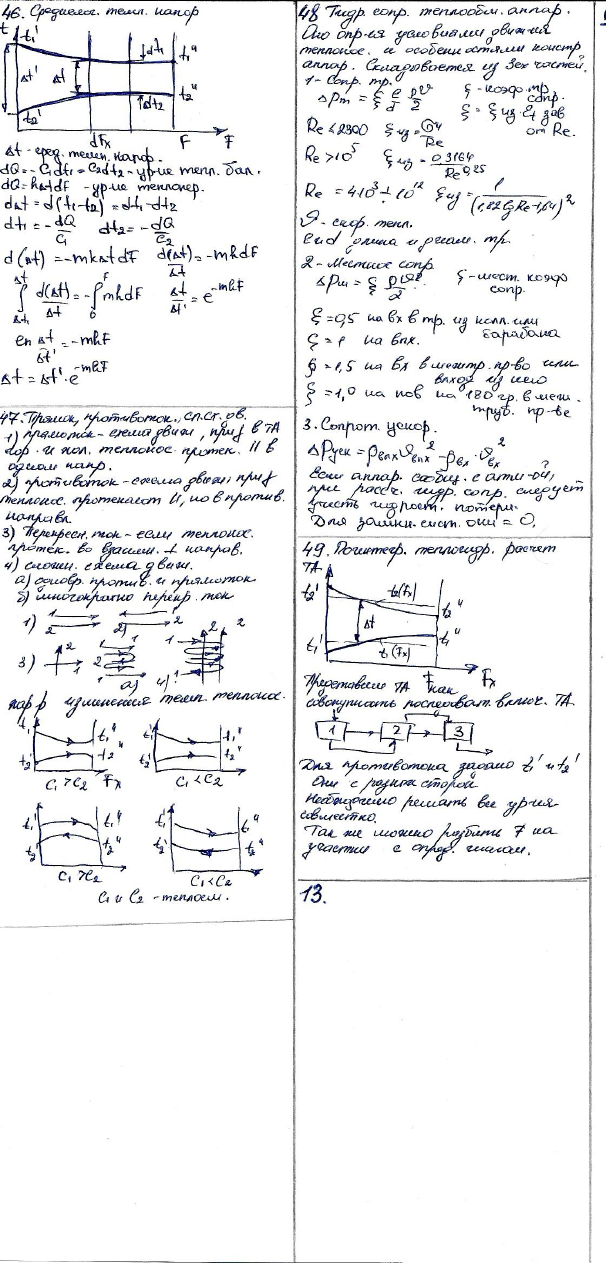 46. Среднелог. темп. напор
t
t₁'
Δt'
Δt
dt₁
dt₂
t₁"
t₂"
t₂'
dFx
F
F
Δt - сред. темп. напор.
dQ = -C₁dt₁ = C₂dt₂ - ур-ие тепл. бал.
dQ = kΔtdF - ур-ие теплопер.
dΔt = d(t₁-t₂) = dt₁-dt₂
dt₁ = -dQ/C₁ dt₂ = -dQ/C₂
d(Δt) = -mkΔtdF d(Δt)/Δt = -mkdF
∫ d(Δt)/Δt = -∫ mkdF Δt/Δt' = e^-mkF
ln Δt/Δt' = -mkF
Δt = Δt'·e^-mkF
47. Прямок, противоток, сл. ст. ов.
1) прямоток - схема движ, при f в ТА
гор. и хол. теплонос. протек. II в
одном напр.
2) противоток - схема движ, при f
теплонос. протекают II, но в против.
направл
3) Перекресн. ток - если теплонос.
протек. во взаимн. ⊥ направ.
4) сложн. схема движ.
а) одновр. против. и прямоток
б) многократно перекр. ток
1) 1 2 2) 1 2
3) 2 1 1 2 1 а) 4) 1 2 2
хар р изменения темп. теплонос.
t₁' t₂' t₁" t₂" C₁>C₂ Fx
t₁' t₂' t₁" t₂" C₁<C₂
t₁' t₂ t₁" t₂" C₁>C₂
t₁' t₂' t₁" t₂" C₁<C₂
C₁ и C₂ - теплоем.
48 Гидр. сопр. теплообм. аппар.
Оно опр-ся условиями движния
теплонос. и особенностями констр
аппар. Складывается из 3ех частей.
1 - Сопр. тр.
ΔPт = ξ l/d ρϑ²/2 ξ - коэф. тр. сопр.
ξ = ξ из ξt зав от Re.
Re < 2300 ξ из = 64/Re
Re > 10⁵ ξ из = 0,3164/Re^0,25
Re = 4·10³ ÷ 10¹² ξ из = 1/(1,82 lg Re - 1,64)²
ϑ - скор. тепл.
l и d длина и диам. тр.
2 - Местное сопр
ΔPм = ξ ρϑ²/2 ξ - мест. коэф сопр.
ξ = 0,5 на вх в тр. из колл. или
барабана
ξ = 1 на вых.
ξ = 1,5 на вх в межтр. пр-во или
выход из него
ξ = 1,0 на пов на 180 гр. в меж.
труб. пр-ве
3. Сопрот. ускор.
ΔPуск = ρвых ϑвых² - ρвх ϑвх²
Если аппар. сообщ. с атм-ой,
при рассч. гидр. сопр. следует
учесть гидрост. потери.
Для замкн. сист. они = 0.
49. Поинтегр. теплогидр. расчет
ТА
t₂' t₂(Fx) t₂"
Δt
t₁' t₁(Fx) t₁"
F Fx
Представим ТА как
совокупность последоват. включ. ТА.
1 2 3
Для противотока задано t₁' и t₂'
Они с разных сторон
Необходимо решать все ур-ия
совместно.
Так же можно разбить F на
участки с опред. шагом.
13.